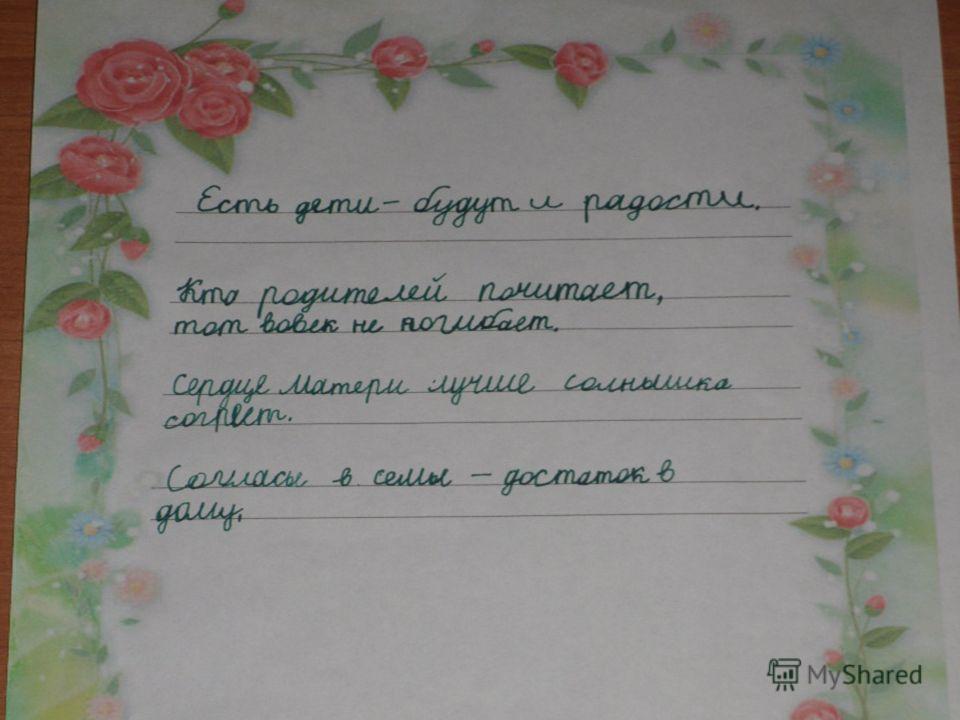 Есть дети – будут и радости.
Кто родителей почитает,
тот вовек не погибает.
Сердце матери лучше солнышка
согреет.
Согласы в семы – достаток в
дому.
MyShared